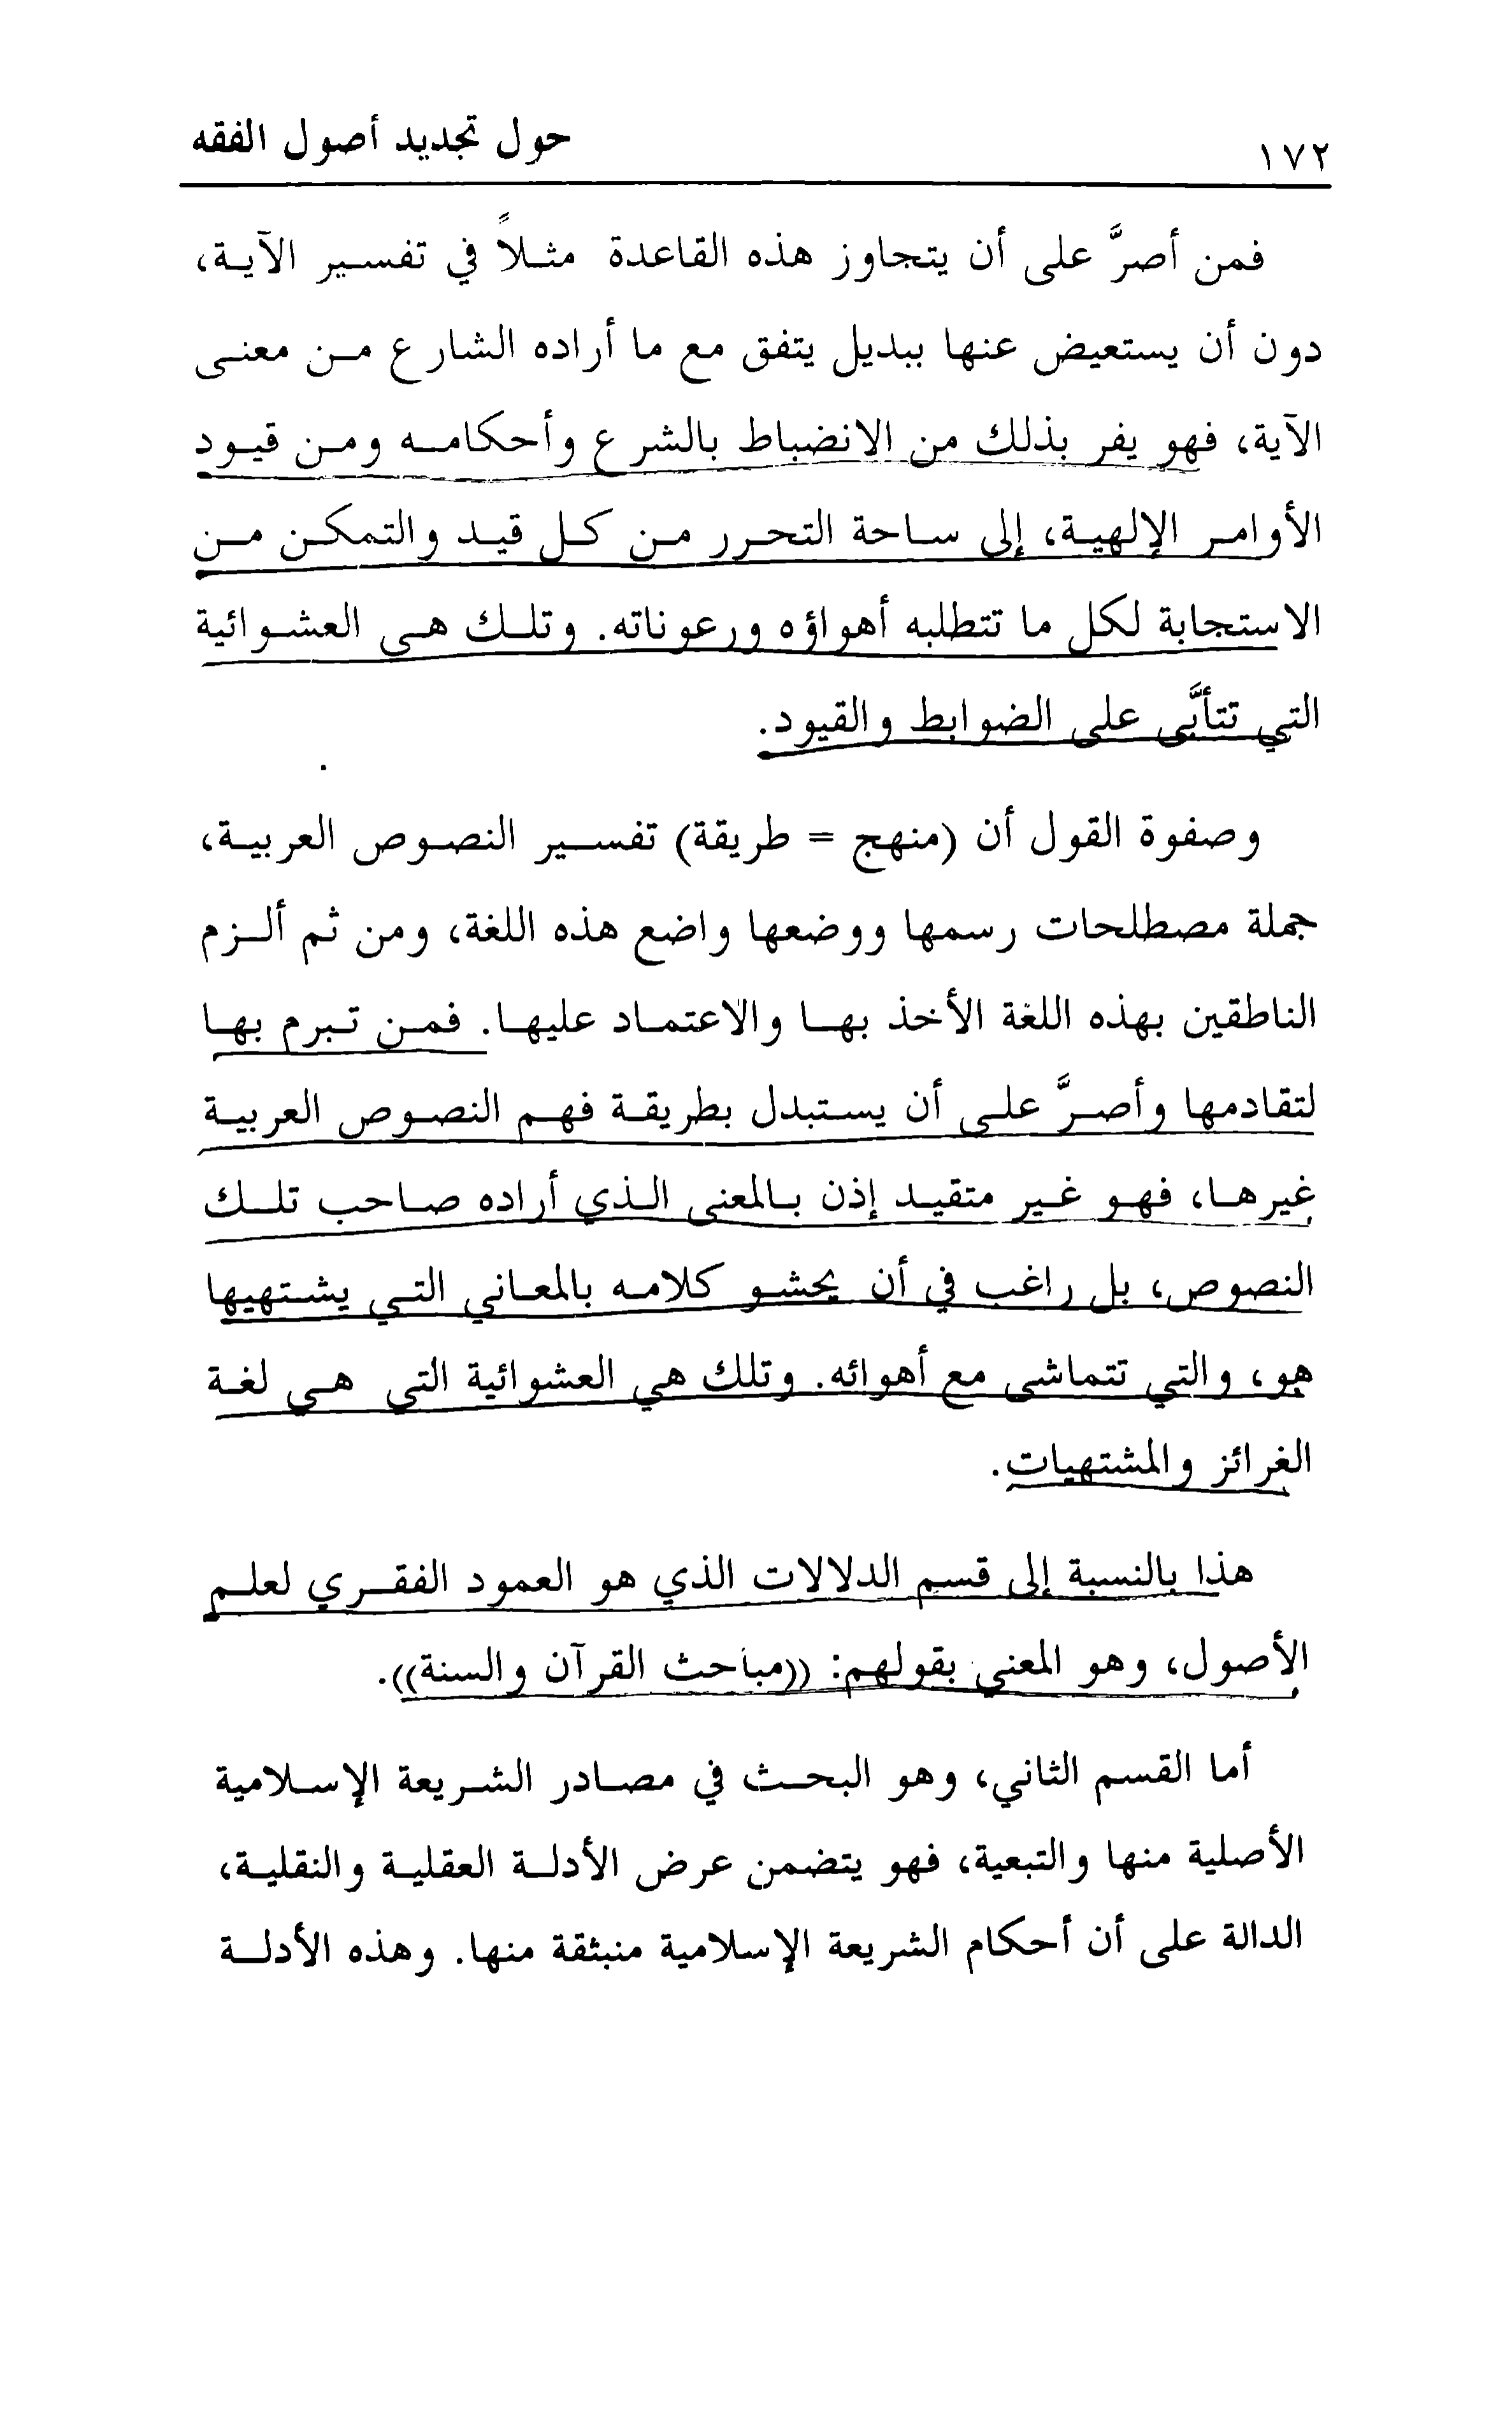 ١٧٢
حول تجديد أصول الفقه
فمن أصرَّ على أن يتجاوز هذه القاعدة مثلاً في تفسير الآية،
دون أن يستعيض عنها ببديل يتفق مع ما أراده الشارع من معنى
الآية، فهو يفر بذلك من الانضباط بالشرع وأحكامه ومن قيود
الأوامر الإلهية، إلى ساحة التحرر من كل قيد والتمكن من
الاستجابة لكل ما تتطلبه أهواؤه ورعوناته. وتلك هي العشوائية
التي تتأبَّى على الضوابط والقيود.
وصفوة القول أن (منهج = طريقة) تفسير النصوص العربية،
جملة مصطلحات رسمها ووضعها واضع هذه اللغة، ومن ثم ألزم
الناطقين بهذه اللغة الأخذ بها والاعتماد عليها. فمن تبرم بها
لتقادمها وأصرَّ على أن يستبدل بطريقة فهم النصوص العربية
غيرها، فهو غير متقيد إذن بالمعنى الذي أراده صاحب تلك
النصوص، بل راغب في أن يحشو كلامه بالمعاني التي يشتهيها
هو، والتي تتماشى مع أهوائه. وتلك هي العشوائية التي هي لغة
الغرائز والمشتهيات.
هذا بالنسبة إلى قسم الدلالات الذي هو العمود الفقري لعلم
الأصول، وهو المعني بقولهم: ((مباحث القرآن والسنة)).
أما القسم الثاني، وهو البحث في مصادر الشريعة الإسلامية
الأصلية منها والتبعية، فهو يتضمن عرض الأدلة العقلية والنقلية،
الدالة على أن أحكام الشريعة الإسلامية منبثقة منها. وهذه الأدلة